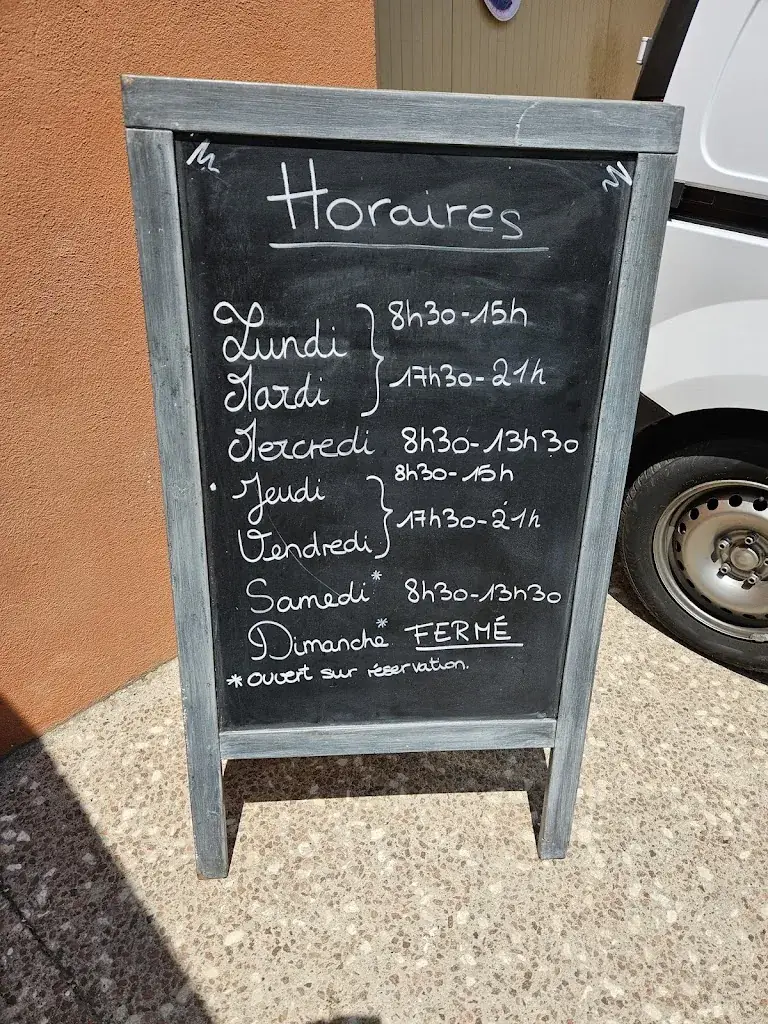 Horaires
Lundi } 8h30-15h
Mardi } 17h30-21h
Mercredi 8h30-13h30
Jeudi } 8h30-15h
Vendredi } 17h30-21h
Samedi* 8h30-13h30
Dimanche* FERMÉ
* Ouvert sur réservation.